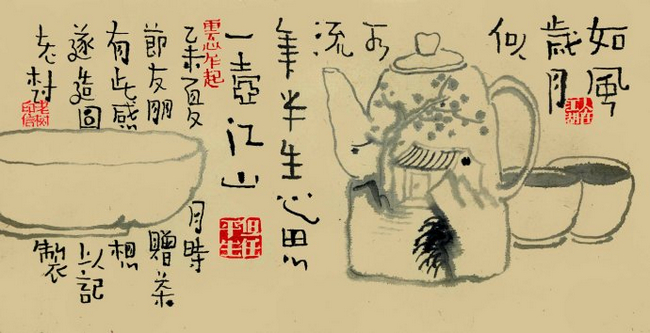 如風
歲月
似
水
流
年半生心思
一壺江山
乙未夏月時
節友朋贈茶
有此感想
遂造圖以記
老树製
人在江湖
但任平生